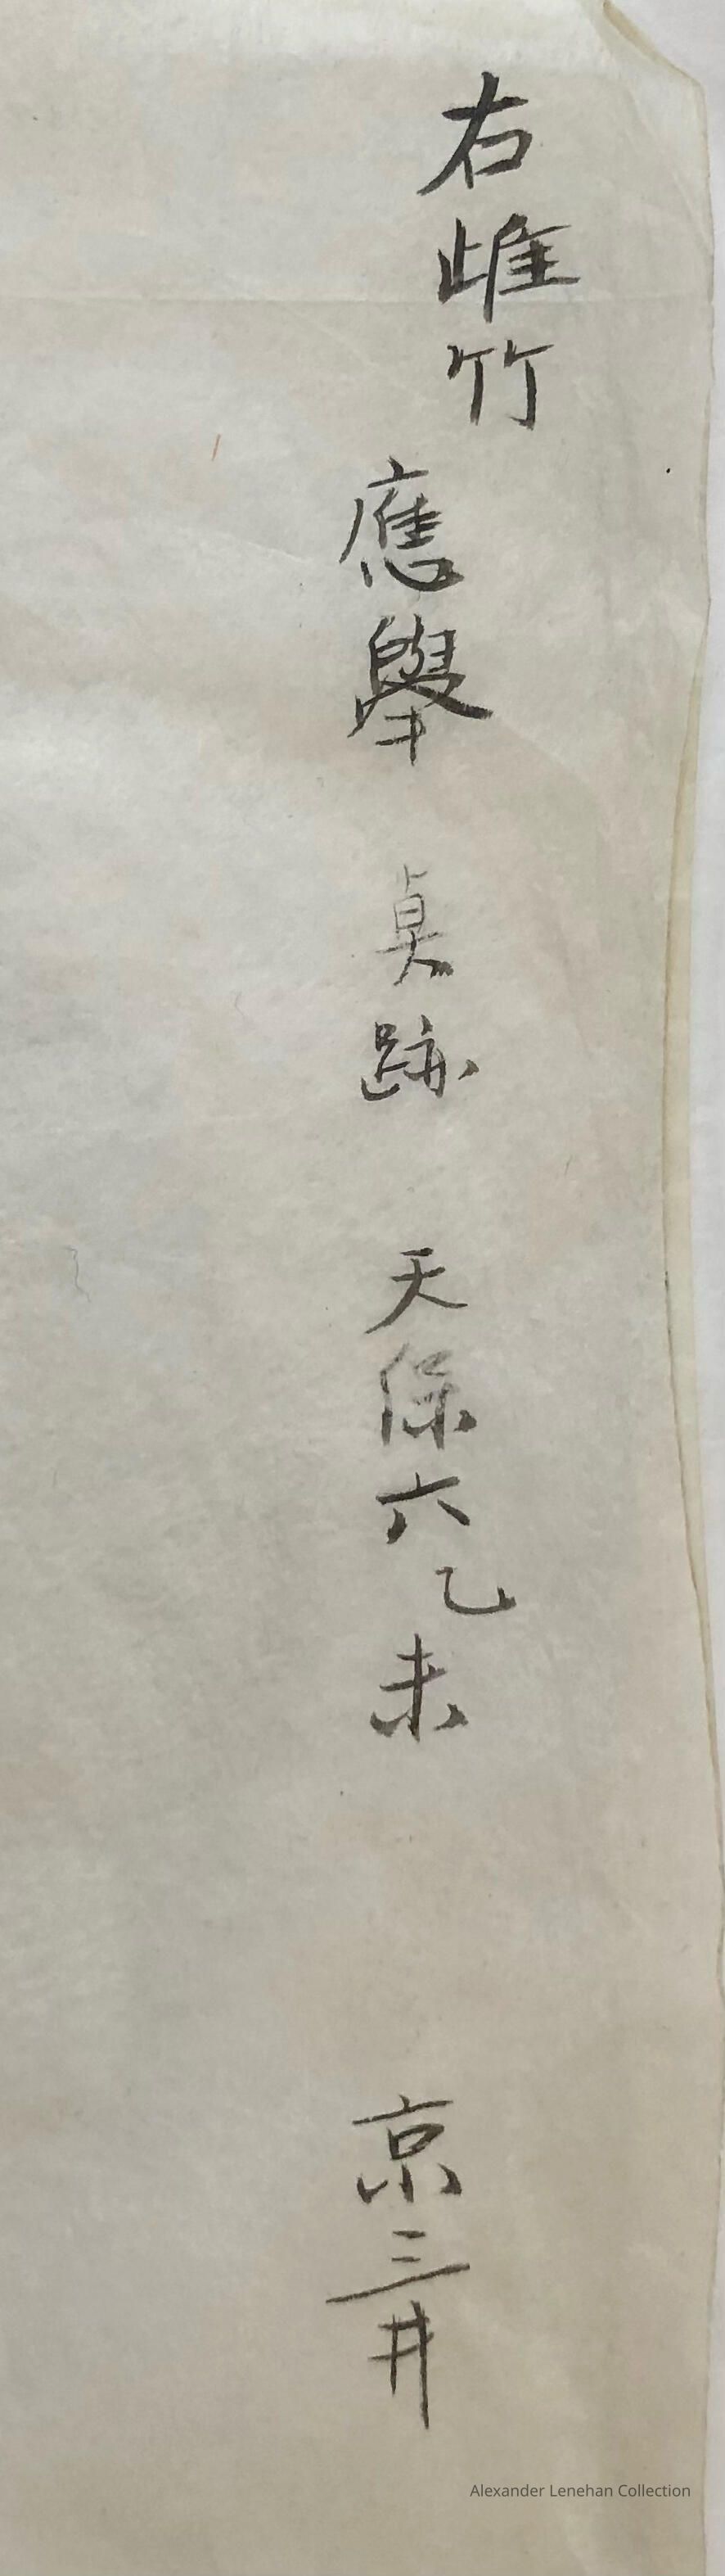 右雌竹
應擧 眞跡 天保六乙未 京三井
Alexander Lenehan Collection